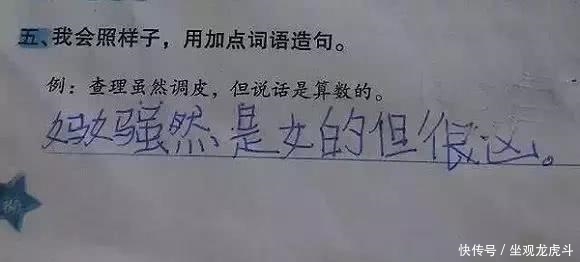 五、我会照样子，用加点词语造句。
例：查理虽然调皮，但说话是算数的。
妈妈虽然是女的但很凶。
快传号 / 坐观龙虎斗